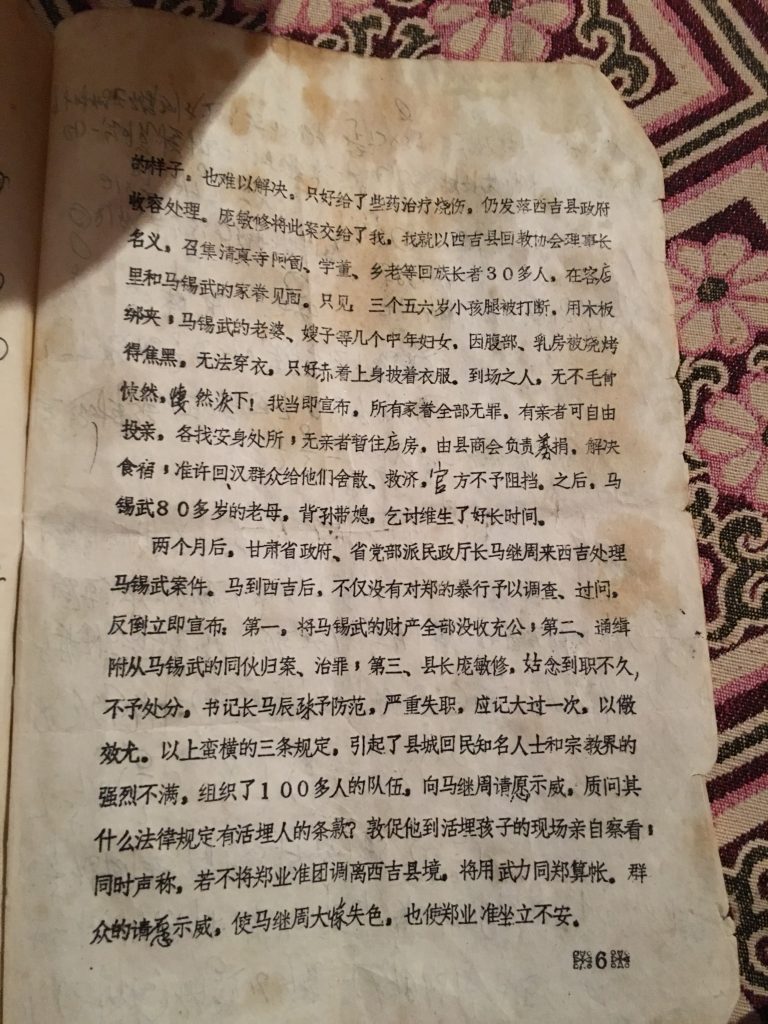 的样子。也难以解决。只好给了些药治疗烧伤，仍发落西吉县政府
收容处理。庞敏修将此案交给了我，我就以西吉县回教协会理事长
名义，召集清真寺阿訇、学董、乡老等回族长者３０多人，在客店
里和马锡武的家眷见面。只见，三个五六岁小孩腿被打断，用木板
绑夹；马锡武的老婆、嫂子等几个中年妇女，因腹部、乳房被烧烤
得焦黑，无法穿衣，只好赤着上身披着衣服。到场之人，无不毛骨
悚然，凄然泪下！我当即宣布，所有家眷全部无罪，有亲者可自由
投亲，各找安身处所；无亲者暂住店房，由县商会负责募捐，解决
食宿；准许回汉群众给他们舍散、救济，官方不予阻挡。之后，马
锡武８０多岁的老母，背孙带媳，乞讨维生了好长时间。
两个月后，甘肃省政府、省党部派民政厅长马继周来西吉处理
马锡武案件。马到西吉后，不仅没有对郑的暴行予以调查、过问，
反倒立即宣布：第一，将马锡武的财产全部没收充公；第二、通缉
附从马锡武的同伙归案、治罪；第三、县长庞敏修，姑念到职不久，
不予处分，书记长马辰疎予防范，严重失职，应记大过一次，以儆
效尤。以上蛮横的三条规定，引起了县城回民知名人士和宗教界的
强烈不满，组织了１００多人的队伍，向马继周请愿示威，质问其
什么法律规定有活埋人的条款？敦促他到活埋孩子的现场亲自察看；
同时声称，若不将郑业准团调离西吉县境，将用武力同郑算帐。群
众的请愿示威，使马继周大惊失色，也使郑业准坐立不安。
6